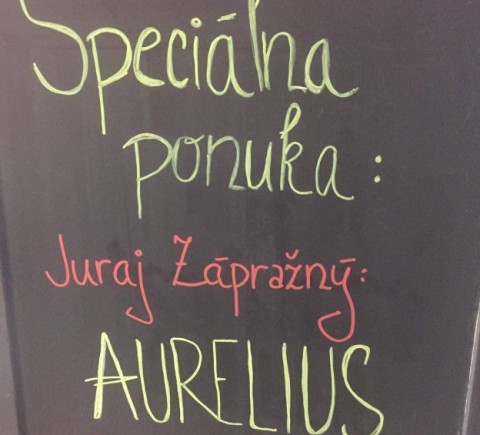 Špeciálna
ponuka:
Juraj Zápražný:
AURELIUS